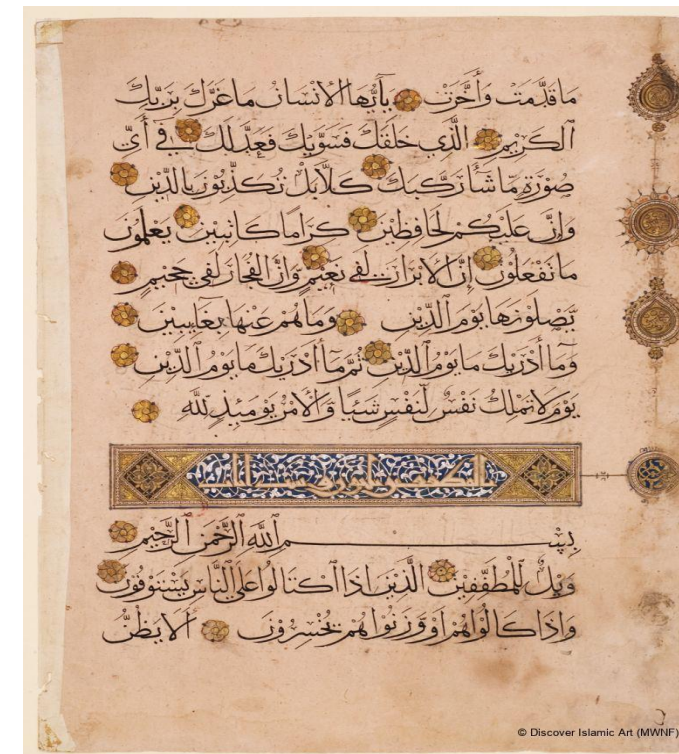 ما قدّمت وأخّرت يا أيّها الانسان ما غرّك بربّك
الكريم الّذي خلقك فسوّيك فعدلك في أيّ
صورة مّا شاء ركّبك كلّا بل تكذّبون بالدّين
وإنّ عليكم لحافظين كراما كاتبين يعلمون
ما تفعلون إنّ الابرار لفي نعيم وإنّ الفجّار لفي جحيم
يصلونها يوم الدّين وما هم عنها بغايبين
وما أدريك ما يوم الدّين ثمّ ما أدريك ما يوم الدّين
يوم لا تملك نفس لنفس شيئا والامر يومئذ لله
بسم الله الرّحمن الرّحيم
ويل للمطفّفين الّذين اذا اكتالوا على النّاس يستوفون
واذا كالوهم او وزنوهم يخسرون الا يظنّ
© Discover Islamic Art (MWNF)